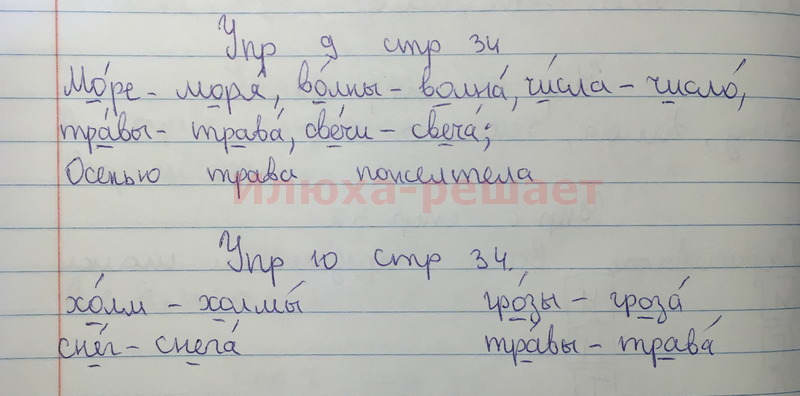 Упр 9 стр 34
Мо́ре - моря́, во́лны - волна́, чи́сла - число́,
тра́вы - трава́, све́чи - свеча́;
Осенью трава пожелтела
илюха-решает
Упр 10 стр 34.
хо́лм - холмы́ гро́зы - гроза́
сне́г - снега́ тра́вы - трава́